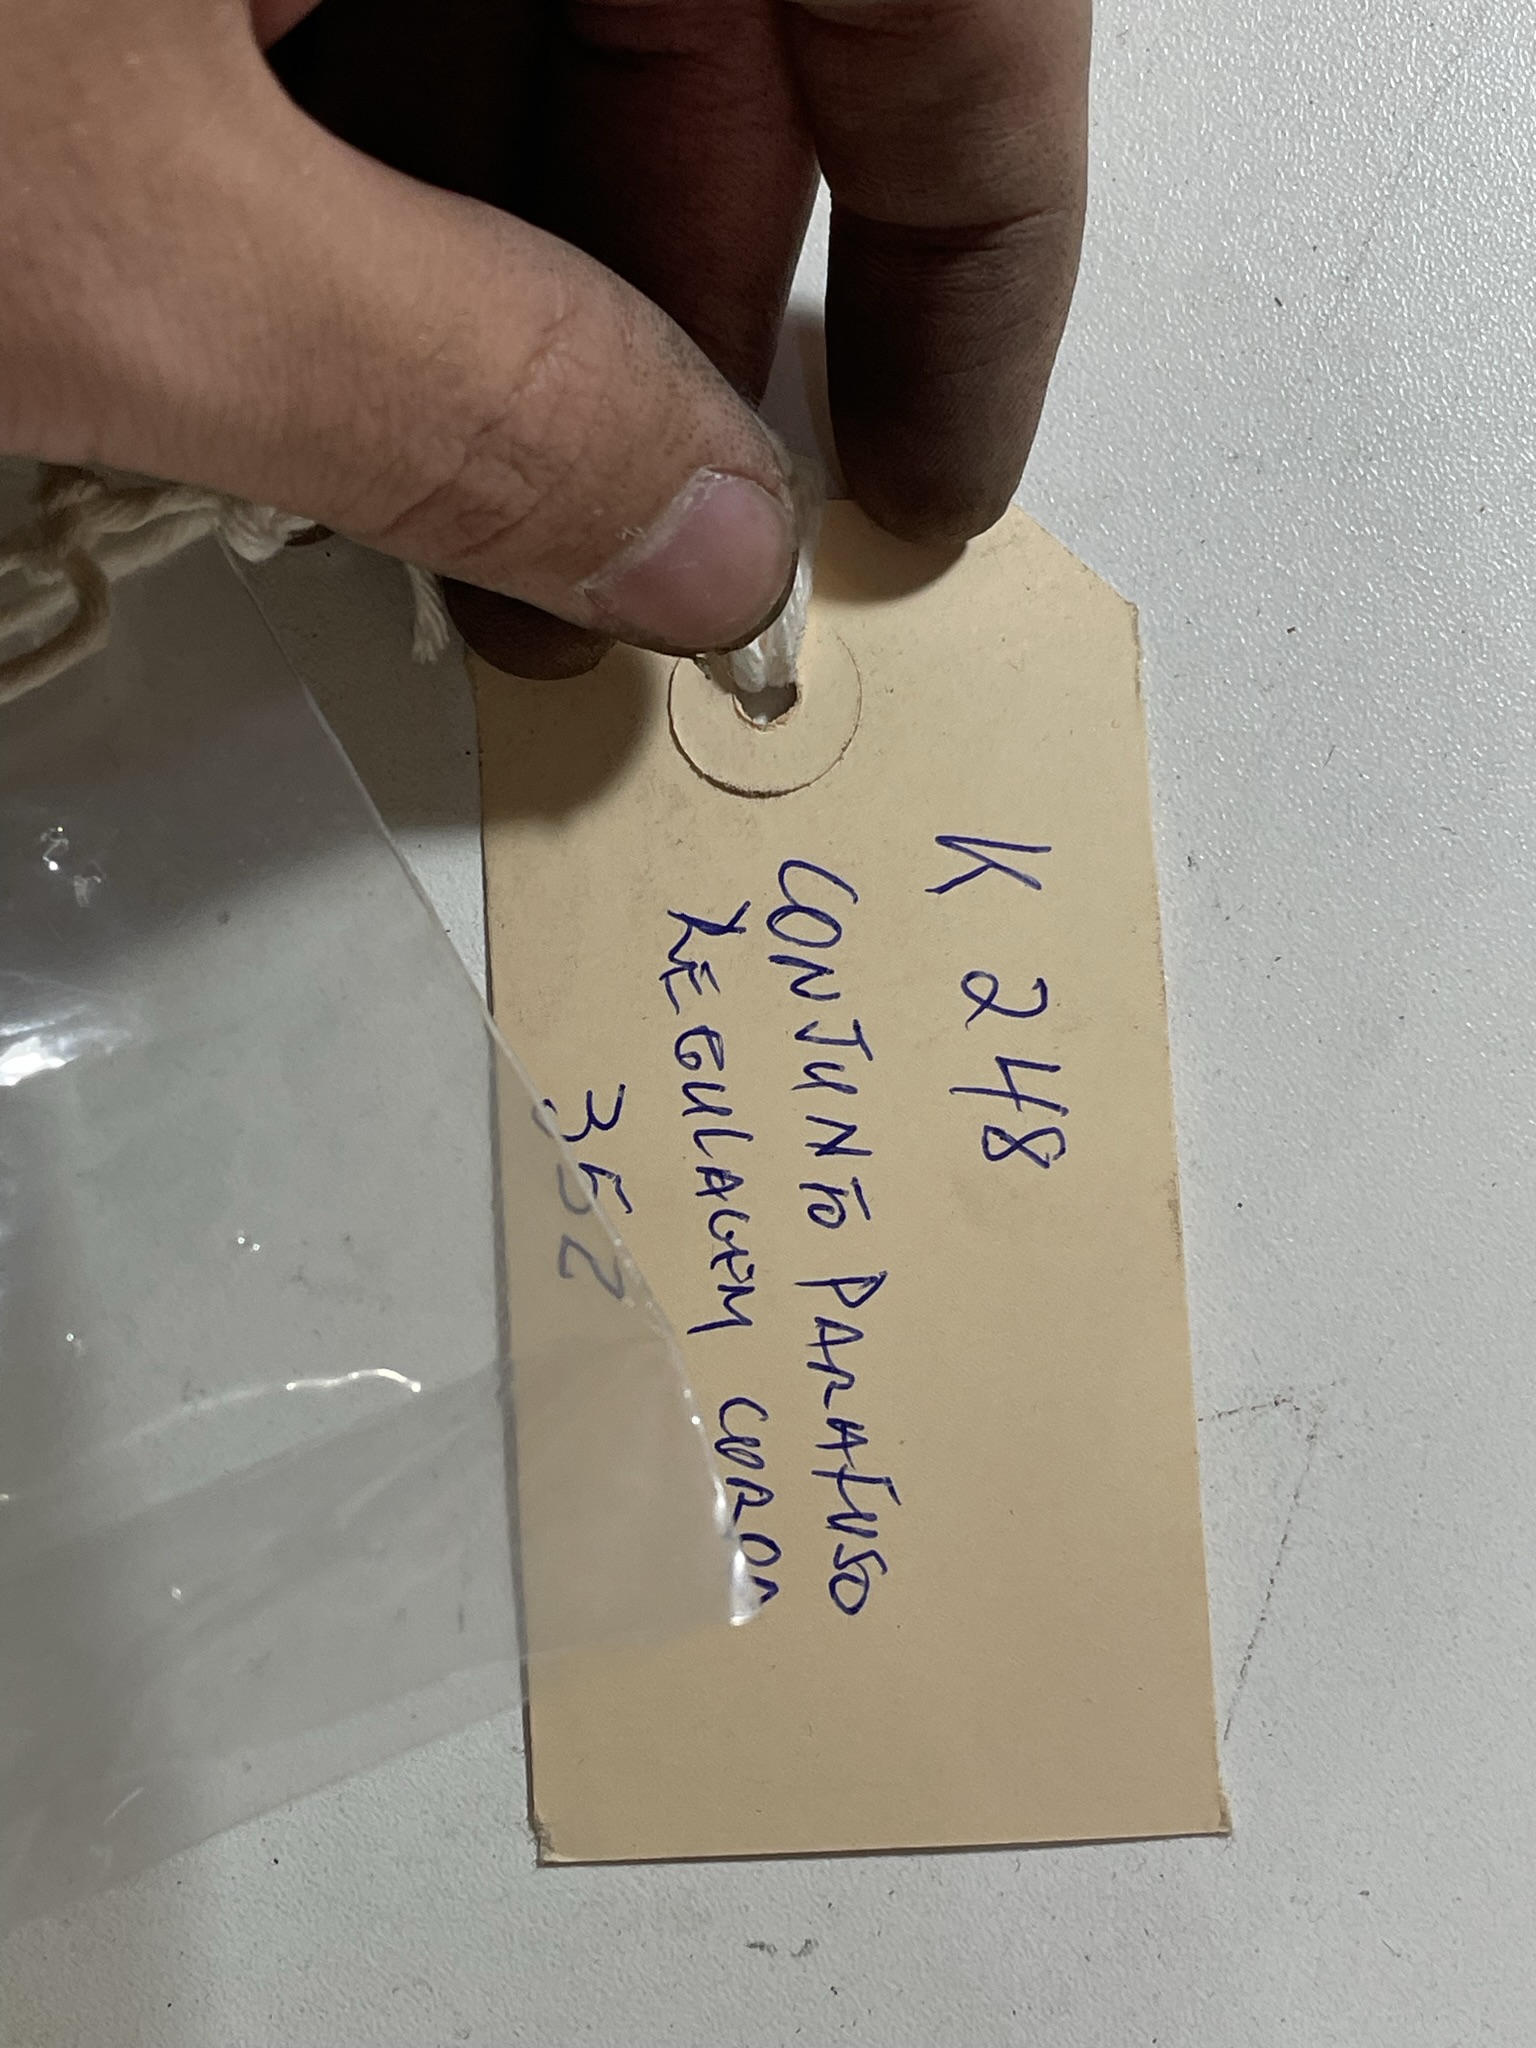 K 248
CONJUNTO PARAFUSO
REGULAGEM COROA
352